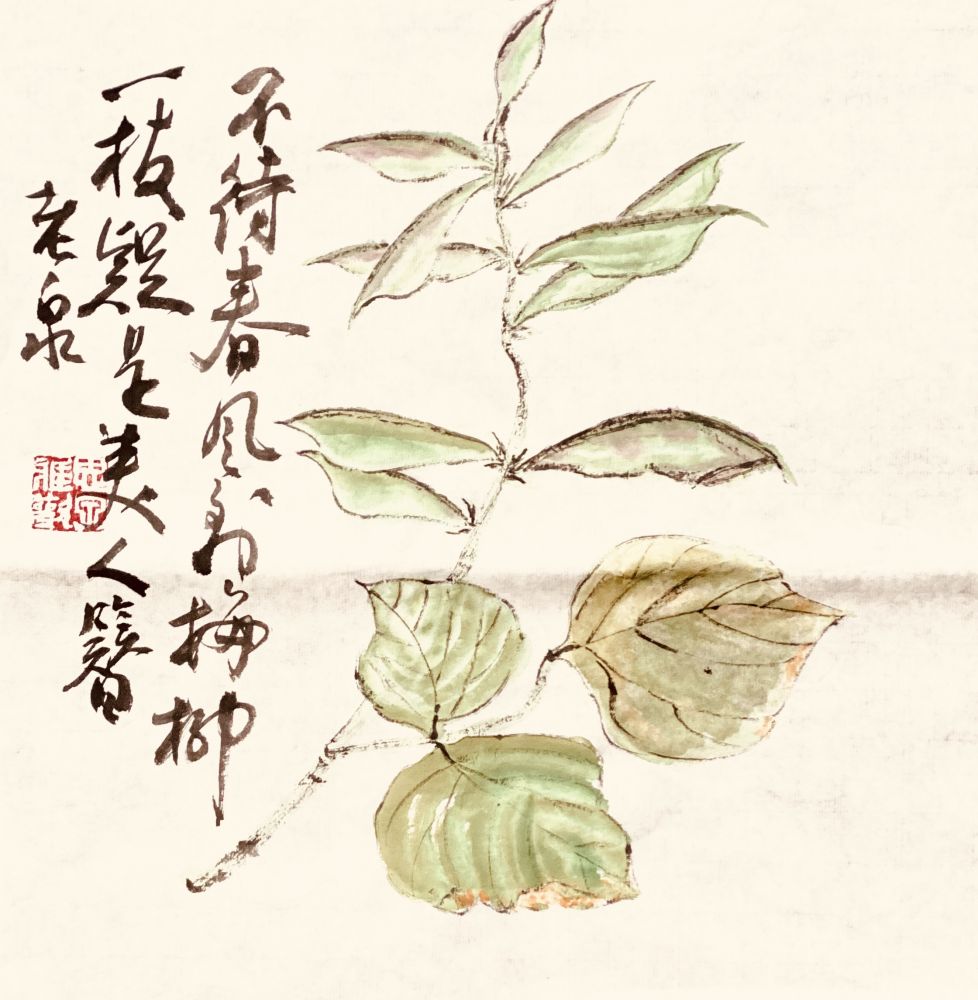 不待春风到梅柳
一枝疑是美人簪
老泉